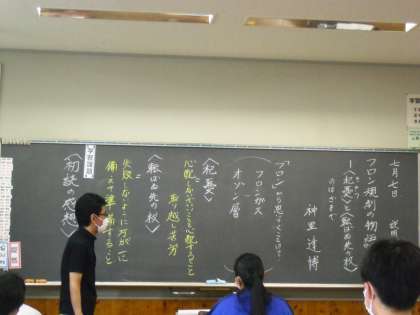 七月七日
フロン規制の物語
―〈杞憂〉と〈転ばぬ先の杖〉
のはざまで
神里達博
「フロン」から思いつくことは?
フロンガス
オゾン層
〈杞憂〉
心配しなくてもいいことを心配すること
取り越し苦労
〈転ばぬ先の杖〉
失敗しないように万が一に
備えて準備しておくこと
学習課題
〈初読の感想〉